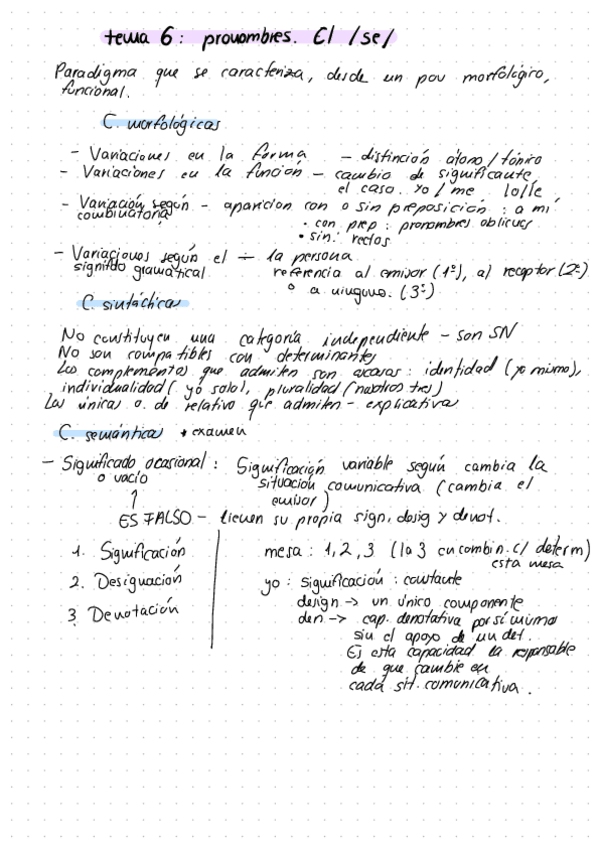 tema 6: pronombres. El /se/
Paradigma que se caracteriza, desde un pov morfológico,
funcional.
C. morfológicas
- Variaciones en la forma - distinción átono / tónico
- Variaciones en la función - cambio de significante
el caso. yo / me lo/le
- Variación según - aparición con o sin preposición : a mí
combinatoria
• con prep : pronombres oblicuos
• sin: rectos
- Variaciones según el - la persona
signifdo gramatical referencia al emisor (1º), al receptor (2º)
o a ninguno. (3º)
C. sintáctica
No constituyen una categoría independiente - son SN
No son compatibles con determinantes
Los complementos que admiten son escasos : identidad (yo mismo),
individualidad ( yo solo), pluralidad (nosotros tres)
Las únicas o. de relativo que admiten - explicativa
C. semántica * examen
- Significado ocasional : Significación variable según cambia la
o vacío situación comunicativa (cambia el
emisor)
↑
ES FALSO - tienen su propia sign, desig y denot.
1. Significación mesa : 1, 2, 3 (la 3 en combin. c/ determ)
esta mesa
2. Designación yo : significación : constante
design → un único componente
3. Denotación den → cap. denotativa por sí misma
sin el apoyo de un det.
Es esta capacidad la responsable
de que cambie en
cada sit. comunicativa.